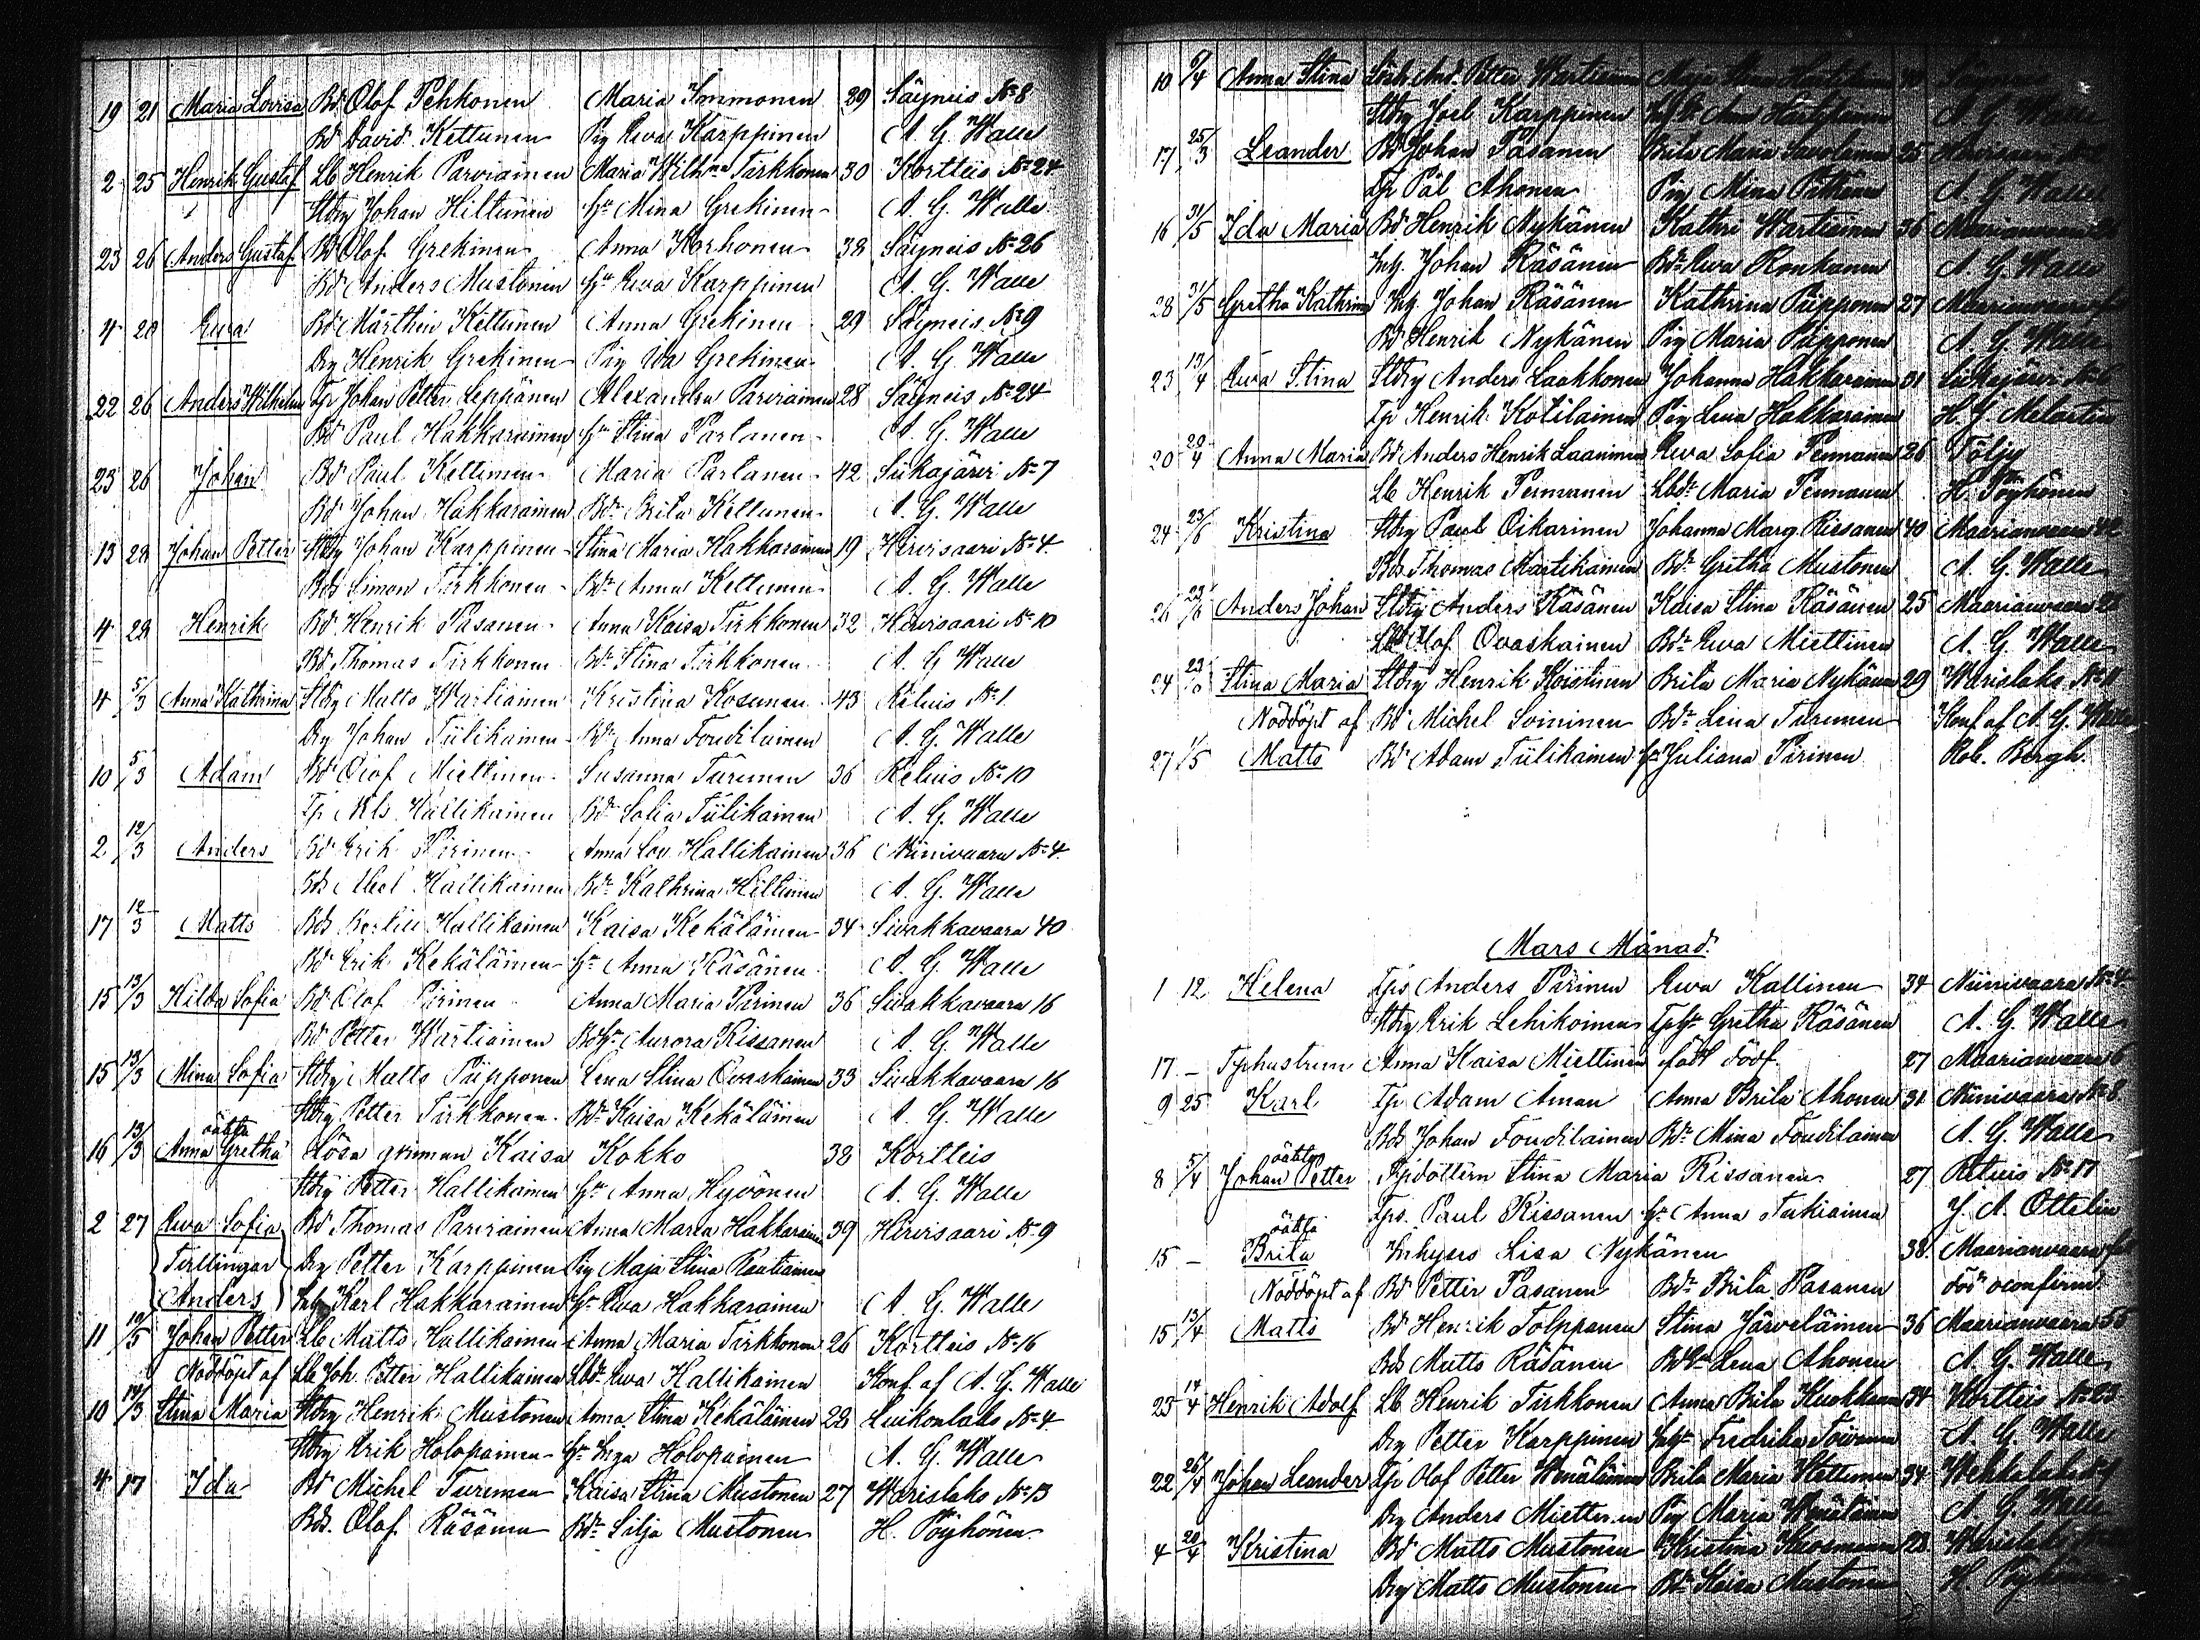 19 21 Maria Lovisa Bd Olof Pehkonen Maria Immonen 29 Säyneis No 8
Bd David Kettunen Pig Ewa Karppinen A. G. Walle
2 25 Henrik Gustaf Lb Henrik Parviainen Maria Wilhna Tirkkonen 30 Kortteis No 24
Stdrg Johan Hiltunen hu Mina Grekinen A. G. Walle
23 26 Anders Gustaf Bd Olof Grekinen Anna Korhonen 38 Säyneis No 26
Bd Anders Mustonen hu Ewa Karppinen A. G. Walle
4 28 Ewa Bd Mårthen Kettunen Anna Grekinen 29 Säyneis No 9
Drg Henrik Grekinen Pig Ida Grekinen A. G. Walle
22 26 Anders Wilhelm Tp Johan Petter Leppänen Alexandra Parviainen 28 Säyneis No 24
Bd Paul Hakkarainen hu Stina Partanen A. G. Walle
23 26 Johan Bd Paul Kettunen Maria Partanen 42 Siikajärvi No 7
Bd Johan Hakkarainen Bdr Brita Kettunen A. G. Walle
13 28 Johan Petter Stdrg Johan Karppinen Stina Maria Hakkarainen 19 Hirvisaari No 4
Bds Simon Tirkkonen Bdr Anna Kettunen A. G. Walle
4 28 Henrik Bd Henrik Pasanen Anna Kaisa Tirkkonen 32 Hirvisaari No 10
Bd Thomas Tirkkonen Bdr Stina Tirkkonen A. G. Walle
4 5/3 Anna Kathrina Stdrg Matts Wartiainen Kristina Kosunen 43 Retuis No 1
Drg Johan Tiilikainen Bdr Anna Toudilainen A. G. Walle
10 5/3 Adam Bd Olof Miettinen Susanna Turunen 36 Retuis No 10
Tp Nils Hallikainen Bdr Sofia Tiilikainen A. G. Walle
2 12/3 Anders Bd Erik Pirinen Anna Lov. Hallikainen 36 Niinivaara No 4
Bds Abel Hallikainen Bdr Kathrina Hiltunen A. G. Walle
17 12/3 Matts Bds Hallikainen Kaisa Kekäläinen 34 Sivakkavaara 40
Bd Erik Kekäläinen hu Anna Räsänen A. G. Walle
15 13/3 Hilda Sofia Bd Olof Pirinen Anna Maria Pirinen 36 Sivakkavaara 16
Bd Petter Wartiainen Bdhu Aurora Rissanen A. G. Walle
15 13/3 Mina Sofia Stdrg Matts Piipponen Lena Stina Ovaskainen 33 Sivakkavaara 16
Stdrg Petter Tirkkonen Bdr Kaisa Kekäläinen A. G. Walle
oäkta
16 13/3 Anna Gretha Lösa qvinnan Kaisa Kokko 38 Kortteis
Stdrg Petter Hallikainen hu Anna Hyvönen A. G. Walle
2 27 Ewa Sofia Bd Thomas Parviainen Anna Maria Hakkarainen 39 Hirvisaari No 9
Tvillingar Drg Petter Karppinen Pig Maja Stina Rautiainen
Anders Inh Karl Hakkarainen hu Ewa Hakkarainen A. G. Walle
11 Johan Petter Lb Matts Hallikainen Anna Maria Tirkkonen 26 Kortteis No 16
Nöddöpt af Lb Joh. Petter Hallikainen Lbdr Ewa Hallikainen Konf af A. G. Walle
10 Stina Maria Stdrg Henrik Mustonen Anna Stina Kekäläinen 28 Luikonlaks No 4
Stdrg Erik Holopainen hu Inga Holopainen A. G. Walle
4 17 Ida Bd Michel Turunen Kaisa Stina Mustonen 27 Warislaks No 13
Bds. Olof Räsänen Bdr Silja Mustonen H. Pöyhönen
10 6/4 Anna Stina Petter Wartiainen
Stdrg Joel Karppinen A. G. Walle
17 25/3 Leander Bd Johan Pasanen Brita Maria Savolainen 25
Tp Pål Ahonen Pig Mina A. G. Walle
16 31/5 Ida Maria Bd Henrik Nykänen Kathri Wartiainen 36 Maarianvaara
Inh. Johan Räsänen Bdr Ewa Ronkanen A. G. Walle
28 31/5 Gretha Kathrina Inh. Johan Räsänen Kathrina Piipponen 27 Maarianvaara
Bd Henrik Nykänen Pig Maria Piipponen A. G. Walle
23 13/4 Ewa Stina Stdrg Anders Laakkonen Johanna Hakkarainen 31 Siikajärvi
Tp Henrik Kotilainen Pig Lena Hakkarainen H. G. Melartin
20 20/4 Anna Maria Bd Anders Henrik Laaninen Ewa Sofia Pennanen 26 Pöljy
Lb Henrik Pennanen Lbdr Maria Pennanen H. Pöyhönen
24 23/6 Kristina Stdrg Paul Oikarinen Johanna Marg. Rissanen 40 Maarianvaara 42
Bds Thomas Martikainen Bdr Gretha Mustonen A. G. Walle
Anders Johan Stdrg Anders Räsänen Kaisa Stina Räsänen 25 Maarianvaara
Lb Olof Ovaskainen Bdr Ewa Miettinen A. G. Walle
24 Stina Maria Stdrg Henrik Koistinen Brita Maria Nykänen 29 Warislaks No 11
Nöddöpt af Bd Michel Soininen Bdr Lena Turunen Konf af A. G. Walle
27 1/5 Matts Bd Adam Tiilikainen hu Juliana Pirinen Rob. Bergh.
Mars Månad.
1 12 Helena Tps Anders Pirinen Ewa Kallinen 34 Niinivaara No 4
Stdrg Erik Lehikoinen Tphu Gretha Räsänen A. G. Walle
17 – Tphustrun Anna Kaisa Miettinen född dödf. 27 Maarianvaara 6
9 25 Karl Tp Adam Åman Anna Brita Ahonen 31 Niinivaara No 8
Bds Johan Toudilainen Bdr Mina Toudilainen A. G. Walle
oäkta
8 5/4 Johan Petter Tpdottern Stina Maria Rissanen 27 Retuis No 17
Tps. Paul Rissanen hu Anna Tukiainen J. A. Ottelin
oäkta
15 – Brita Inhyses Lisa Nykänen 38 Maarianvaara
Nöddöpt af Bd Petter Pasanen Bdr Brita Pasanen död oconfirm
15 13/4 Matts Bd Henrik Tolppanen Stina Järveläinen 36 Maarianvaara 55
Bds Matts Räsänen Lena Ahonen A. G. Walle
23 17/4 Henrik Adolf Lb Henrik Tirkkonen Anna Brita 34 Kortteis No 23
Drg Petter Karppinen Fredrika Toivanen A. G. Walle
22 26/4 Johan Leander Tp Olof Petter Wenäläinen Brita Maria Kettunen 34
Drg Anders Miettinen Pig Maria Wenäläinen A. G. Walle
4 20/4 Kristina Bd Matts Mustonen Kristina 28 Warislaks
Drg Matts Mustonen Bdr Kaisa Mustonen H. Pöyhönen